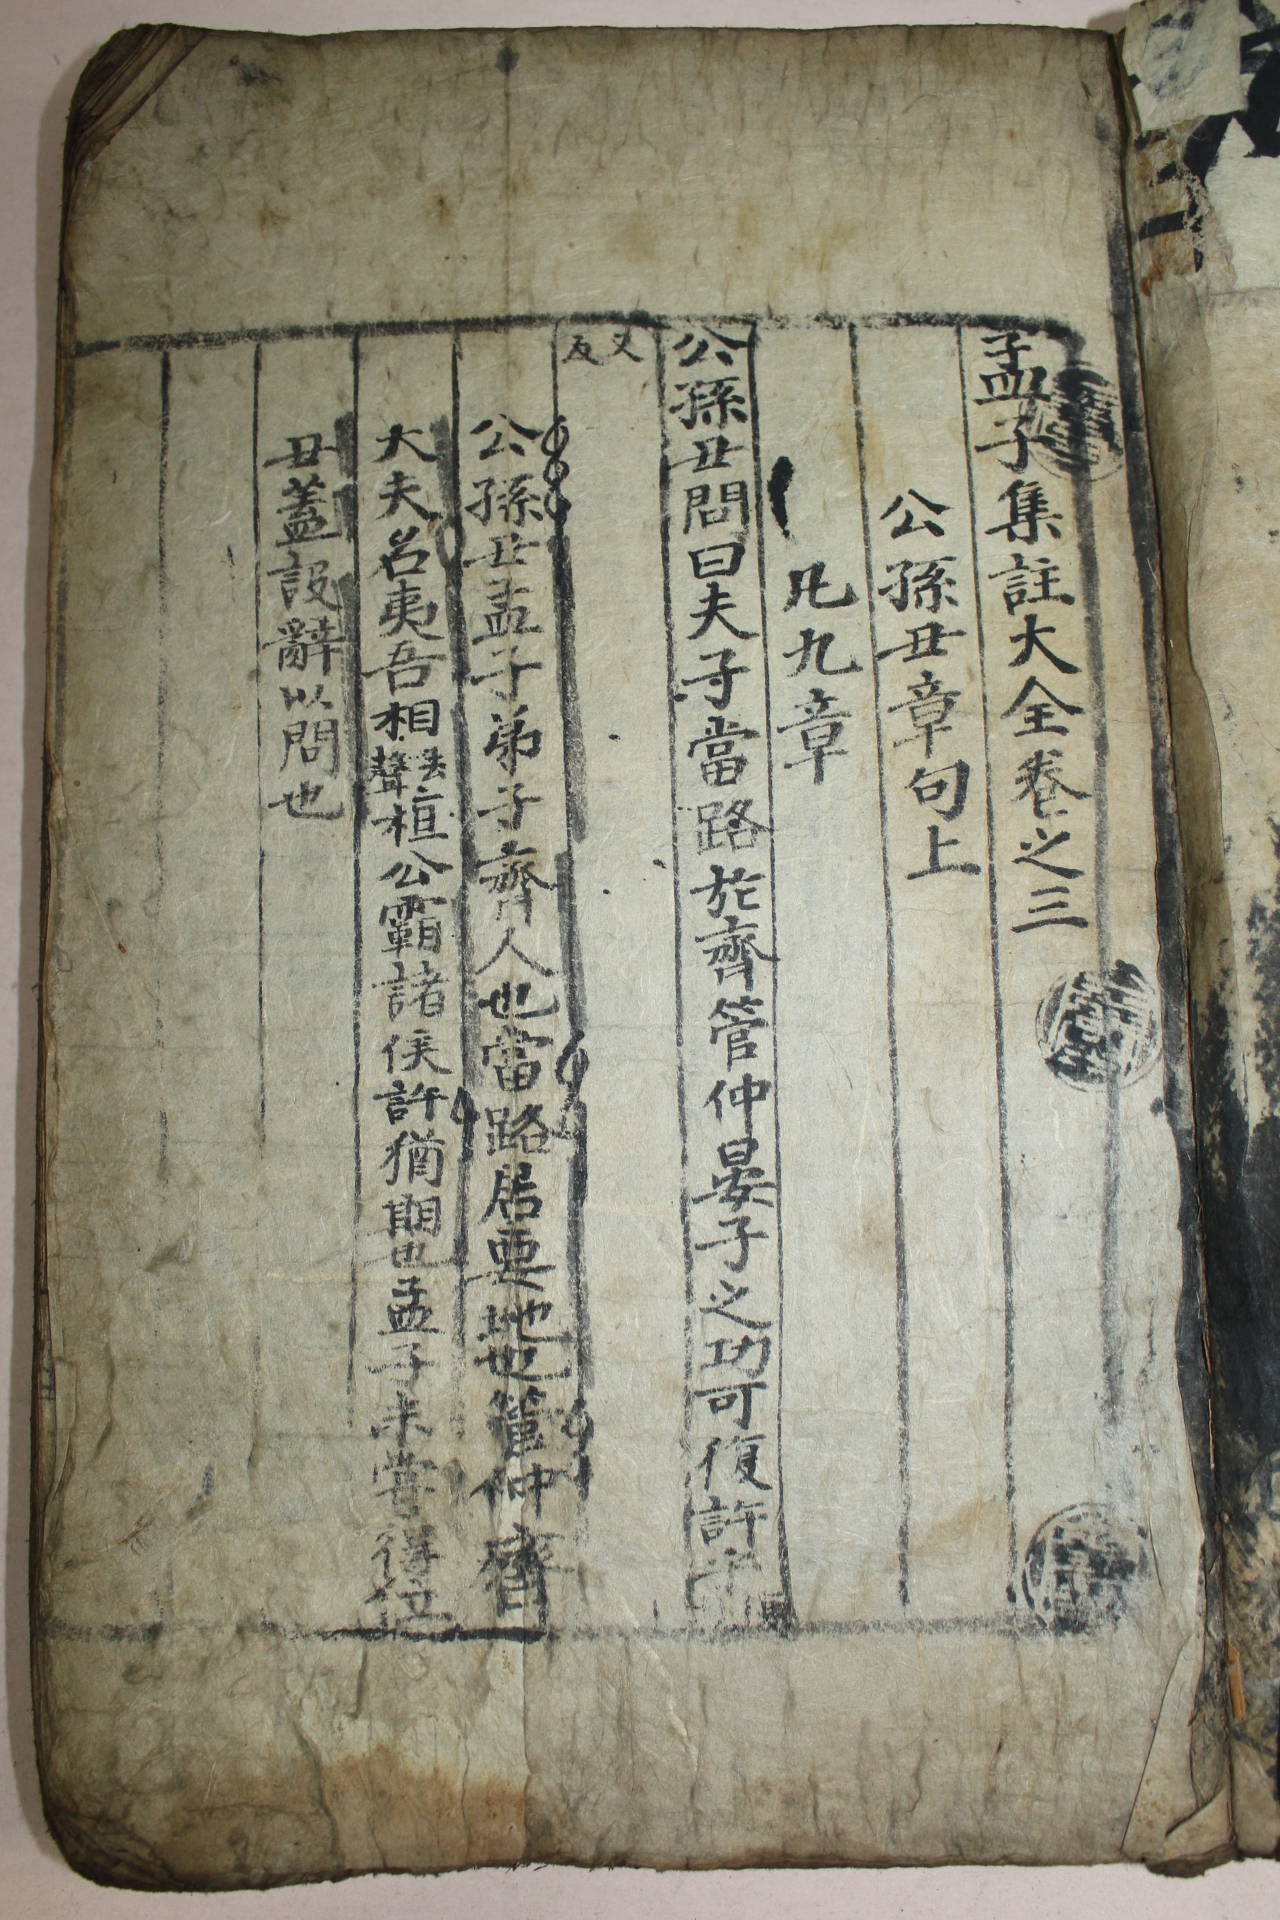 孟子集註大全卷之三
公孫丑章句上
凡九章
公孫丑問曰夫子當路於齊管仲晏子之功可復許乎
又反
公孫丑孟子弟子齊人也當路居要地也管仲齊
大夫名夷吾相去聲桓公霸諸侯許猶期也孟子未嘗得位
丑蓋設辭以問也